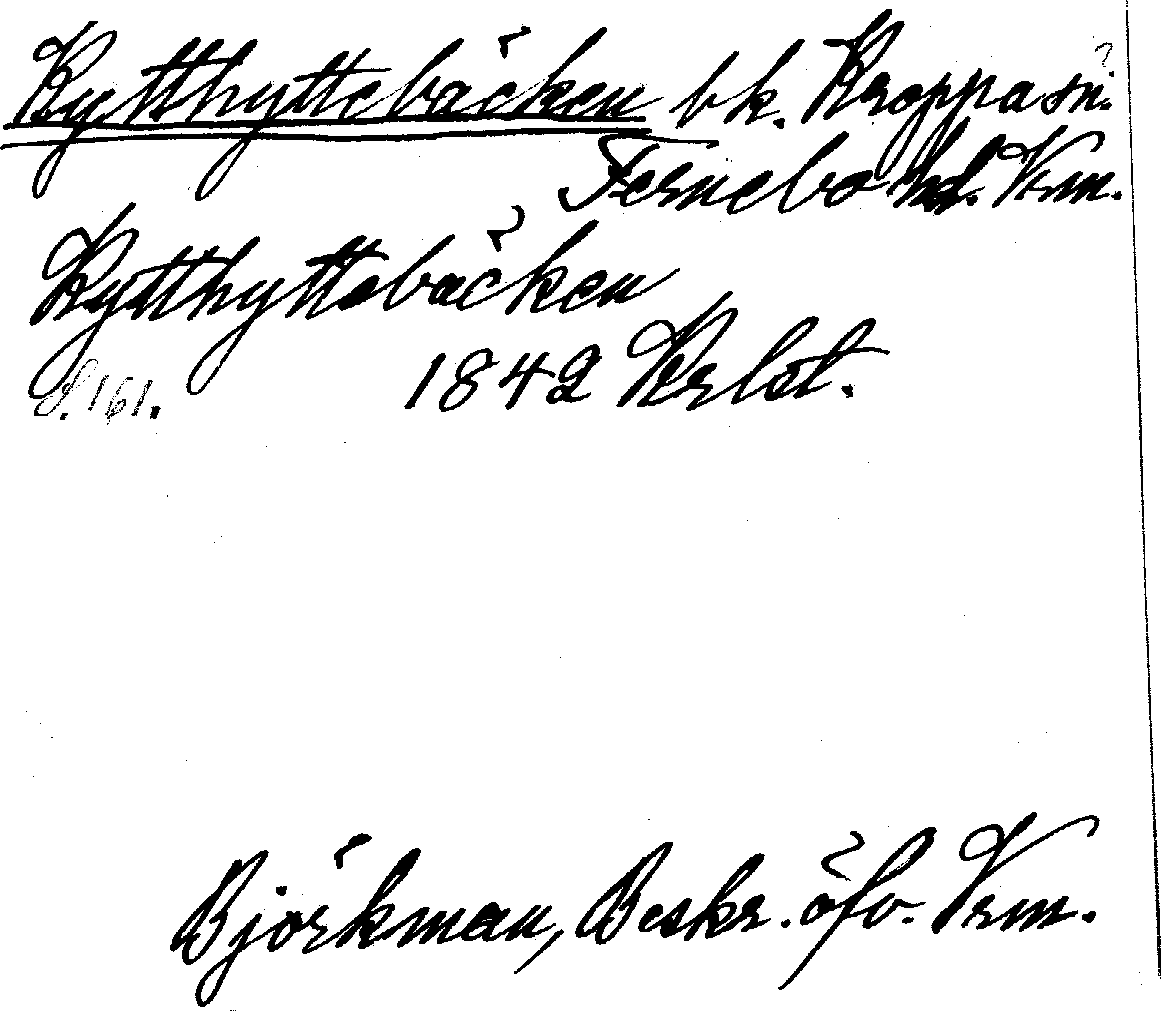 Kytthyttebäcken bk. Kroppa sn. ?
Fernebo hd. Vrm.
Kytthyttebäcken
S. 161. 1842 Krlst.
Björkman, Beskr. öfv. Vrm.